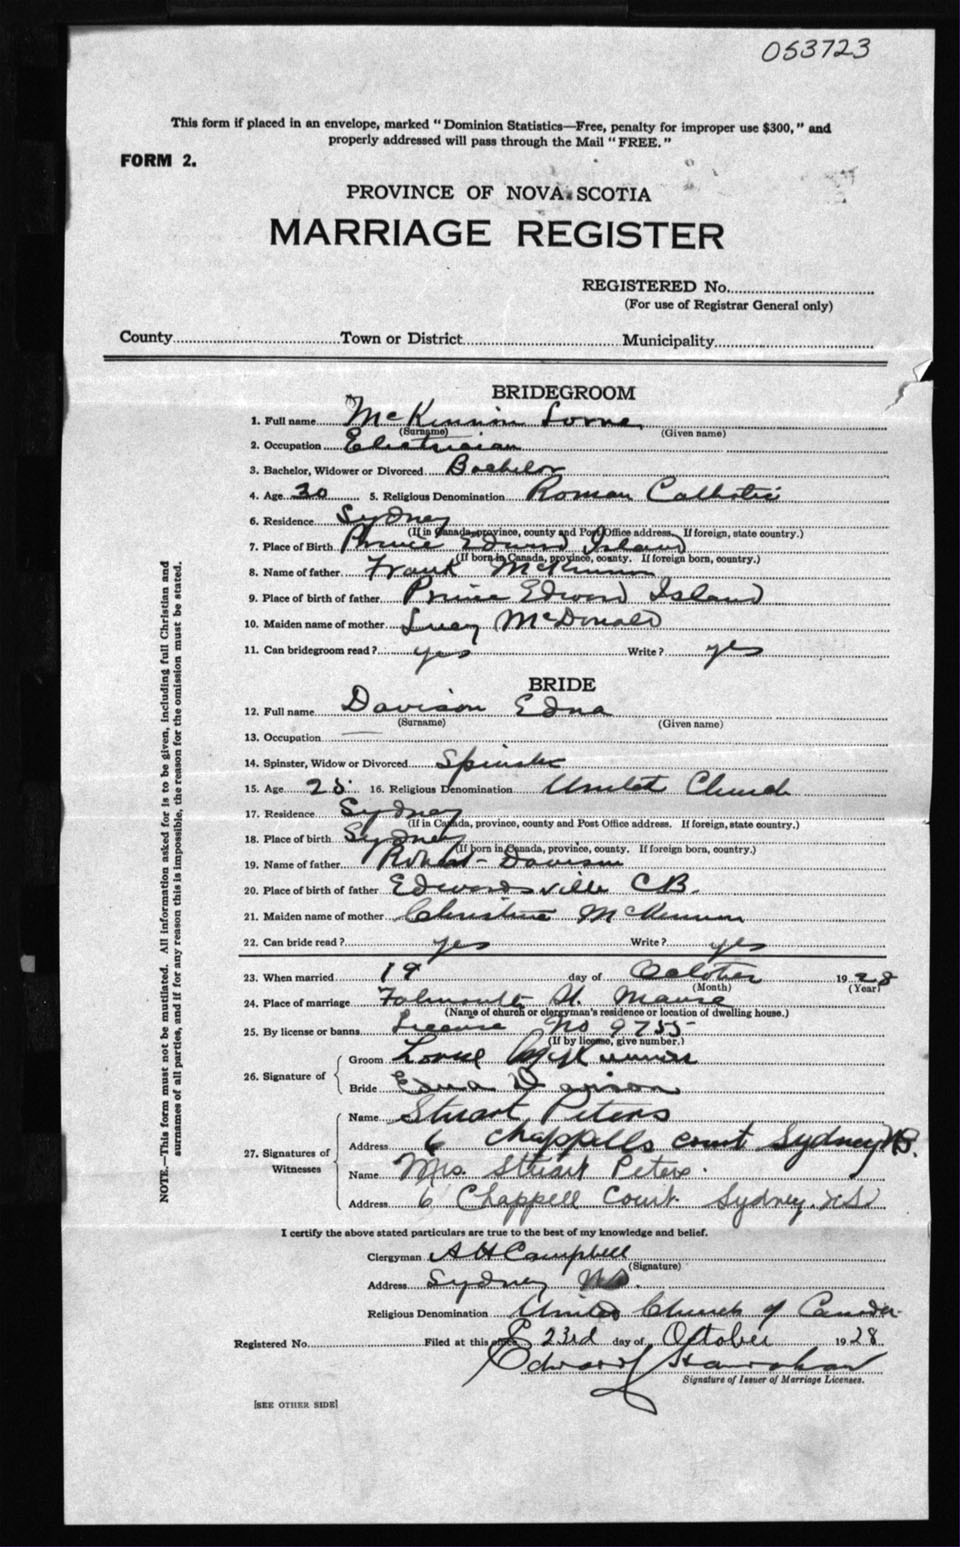 053723
This form if placed in an envelope, marked "Dominion Statistics—Free, penalty for improper use $300," and
properly addressed will pass through the Mail "FREE."
FORM 2.
PROVINCE OF NOVA SCOTIA
MARRIAGE REGISTER
REGISTERED No.
(For use of Registrar General only)
County Town or District Municipality
BRIDEGROOM
1. Full name McKinnon Lorne
(Surname) (Given name)
2. Occupation Electrician
3. Bachelor, Widower or Divorced Bachelor
4. Age 30 5. Religious Denomination Roman Catholic
6. Residence Sydney
(If in Canada, province, county and Post Office address. If foreign, state country.)
7. Place of Birth Prince Edward Island
(If born in Canada, province, county. If foreign born, country.)
8. Name of father Frank McKinnon
9. Place of birth of father Prince Edward Island
10. Maiden name of mother Lucy McDonald
11. Can bridegroom read? yes Write? yes
BRIDE
12. Full name Davison Edna
(Surname) (Given name)
13. Occupation —
14. Spinster, Widow or Divorced Spinster
15. Age 16. Religious Denomination United Church
17. Residence Sydney
(If in Canada, province, county and Post Office address. If foreign, state country.)
18. Place of birth Sydney
(If born in Canada, province, county. If foreign born, country.)
19. Name of father Robert Davison
20. Place of birth of father Edwardsville CB.
21. Maiden name of mother Christine McKinnon
22. Can bride read? yes Write? yes
23. When married 19 day of October 1928
(Month) (Year)
24. Place of marriage Falmouth St. Manse
(Name of church or clergyman's residence or location of dwelling house.)
25. By license or banns License No 9755
(If by license, give number.)
26. Signature of
Groom Lorne McKinnon
Bride Edna Davison
27. Signatures of Witnesses
Name Stuart Peters
Address 6 Chappells court Sydney N.S.
Name Mrs. Stuart Peters.
Address 6 Chappell Court. Sydney. N.S.
I certify the above stated particulars are true to the best of my knowledge and belief.
Clergyman A H Campbell
(Signature)
Address Sydney N.S.
Religious Denomination United Church of Canada
Registered No. Filed at this office 23rd day of October 1928.
Edward
Signature of Issuer of Marriage Licenses.
[SEE OTHER SIDE]
NOTE.—This form must not be mutilated. All information asked for is to be given, including full Christian and
surnames of all parties, and if for any reason this is impossible, the reason for the omission must be stated.